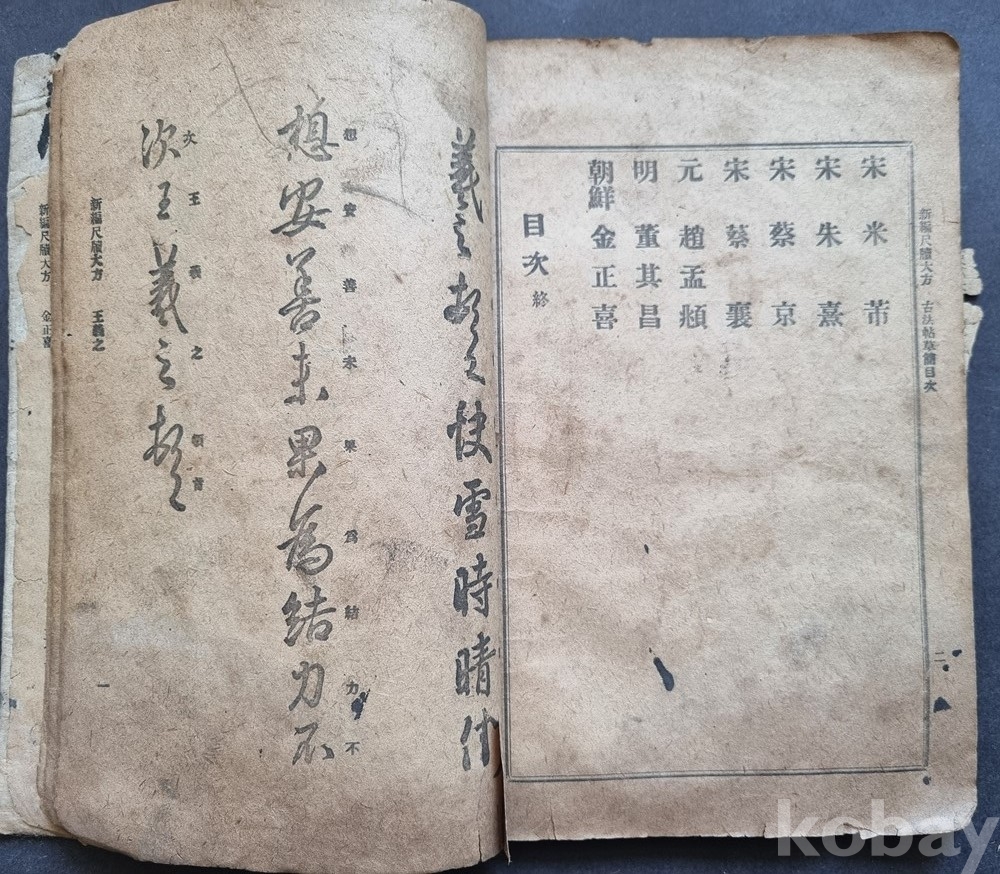 新編尺牘大方 古法帖草簡目次
宋 米芾
宋 朱熹
宋 蔡京
宋 蔡襄
元 趙孟頫
明 董其昌
朝鮮 金正喜
目次 終
二
羲之頓首快雪時晴佳
想安善未果為結力不
想安善未果爲結力不
次王羲之頓首
次王羲之頓首
新編尺牘大方 王羲之
一
新編尺牘大方 金正喜
kobay